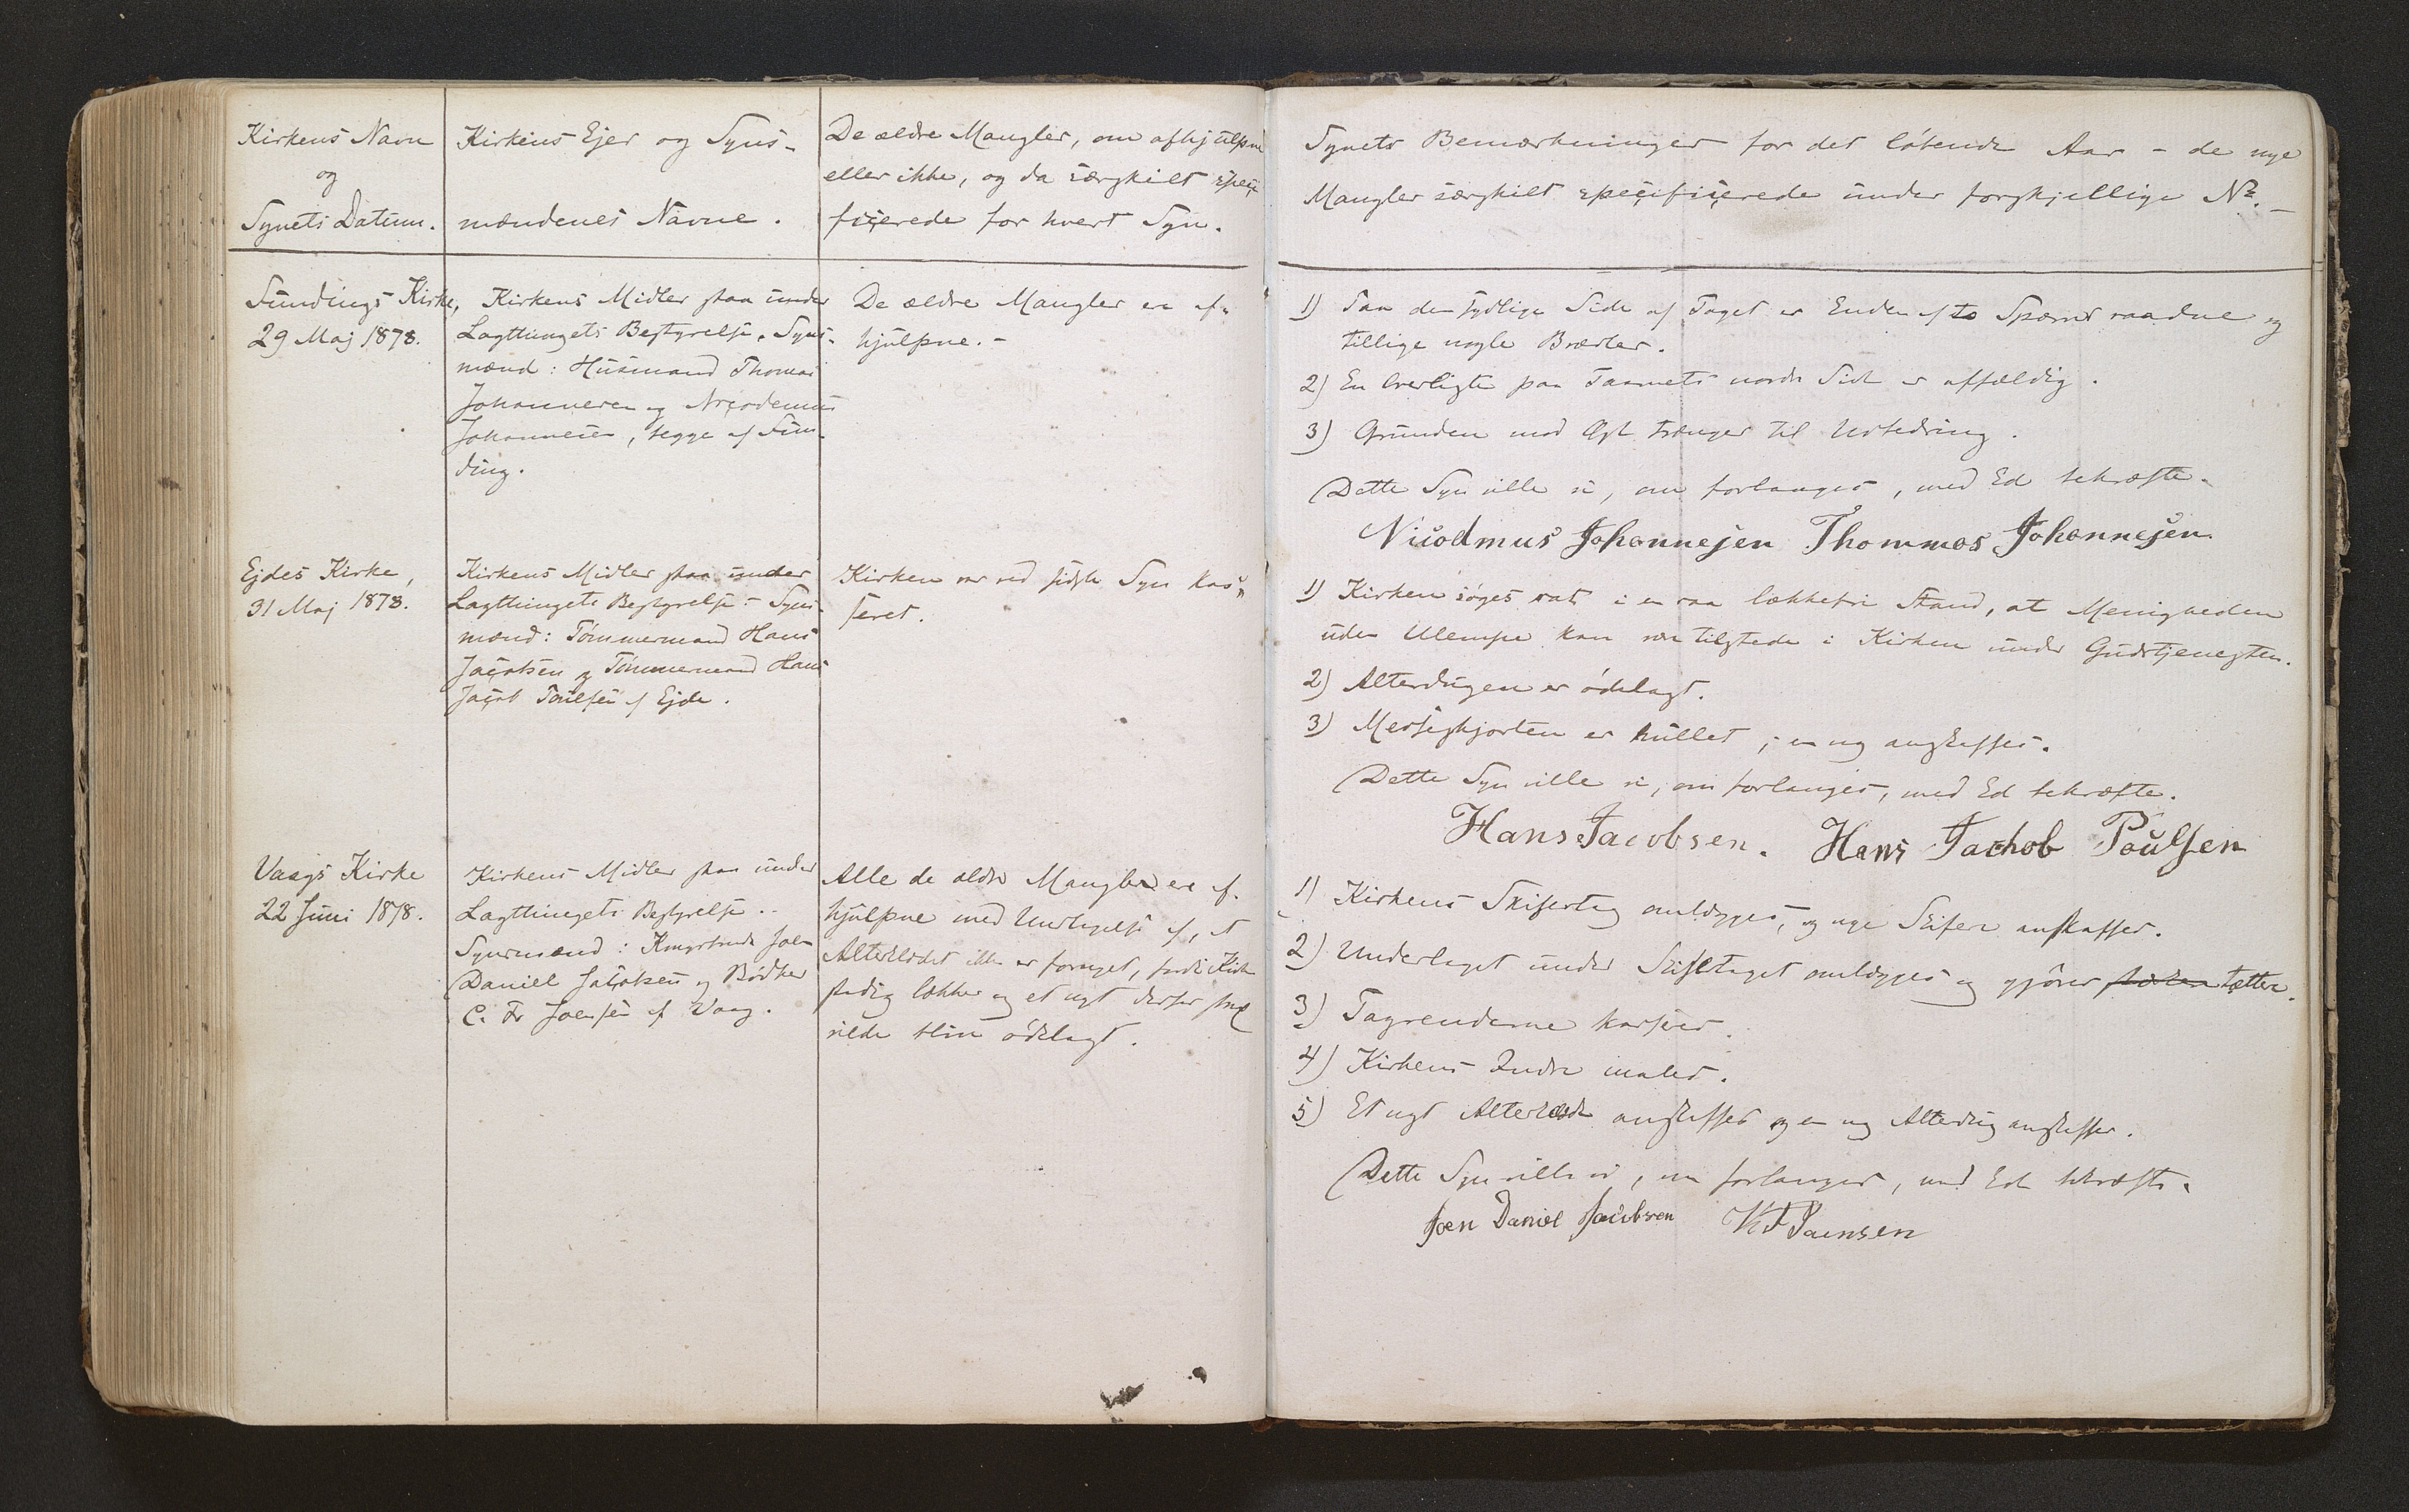 Kirkens Navn
og
Synets Datum.
Kirkens Ejer og Syns-
mændenes Navne.
De ældre Mangler, om afhjulpne
eller ikke, og da særskilt speci
ficerede for hvert Syn.
Sundings Kirke,
29 Maj 1878.
Kirkens Midler staa under
Lagthingets Bestyrelse. Syns-
mænd: Husmand Thomas
Johannesen og Nicodemus
Johannesen, begge af Fun-
ding.
De ældre Mangler er af-
hjulpne. -
Ejdes Kirke,
31 Maj 1878.
Kirkens Midler staa under
Lagthingets Bestyrelse - Syns-
mænd: Tømmermand Hans
Jacobsen og Tømmermand Hans
Jacob Poulsen af Ejde.
Kirken var ved sidste Syn kas-
seret.
Vaags Kirke
22 Juni 1878.
Kirkens Midler staa under
Lagthingets Bestyrelse.
Synsmænd: Joen
Daniel Jacobsen og Bødker
C. Fr Joensen af Vaag.
Alle de ældre Mangler ere af-
hjulpne med Undtagelse af, at
Alterklædet ikke er fornyet, fordi Kirken
stadig lækker og et nyt derfor strax
vilde blive ødelagt.
Synets Bemærkninger for det løbende Aar - de nye
Mangler særskilt specificerede under forskjellige No. -
1) Paa den sydlige Side af Taget er Enden af to Spærrer raadne og
tillige nogle Brædder.
2) En paa Taarnets nordre Side er affældig.
3) Grunden mod Øst trænger til Udbedring.
Dette Syn ville vi, om forlanges, med Ed bekræfte.
Nicodmus Johannesen Thommas Johannesen
1) Kirken søges sat i en saa lækkefri Stand, at Menigheden
uden Ulempe kan være tilstede i Kirken under Gudstjenesten.
2) Alterdugen er ødelagt.
3) Messeskjorten er hullet; en ny anskaffes.
Dette Syn ville vi, om forlanges, med Ed bekræfte.
Hans Jacobsen. Hans Jachob Poulsen
1) Kirkens Skifertag omlægges, og nye Skifere anskaffes.
2) Underlaget under Skifertaget omlægges og gjøres tættere.
3) Tagrenderne kasseres.
4) Kirkens Indre males.
5) Et nyt Alterklæde anskaffes og en ny Alterdug anskaffes.
Dette Syn ville vi, om forlanges, med Ed bekræfte.
Joen Daniel Jacobsen K F Joensen